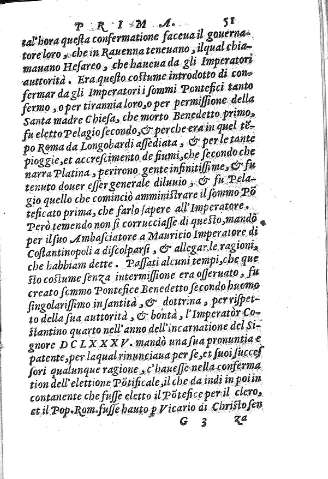 P R I M A. 51
tal'hora questa confermatione faceua il gouerna-
tore loro, che in Rauenna teneuano, ilqual chia-
mauano Hesarco, che haueua da gli Imperatori
auttorità. Era questo costume introdotto di con-
fermar da gli Imperatori i sommi Pontefici tanto
fermo, o per tirannia loro, o per permissione della
Santa madre Chiesa, che morto Benedetto primo,
fu eletto Pelagio secondo, & perche era in quel tē-
po Roma da Longobardi assediata, & per le tante
pioggie, et accrescimento de fiumi, che secondo che
narra Platina, perirono gente infinitissime, & fu
tenuto douer esser generale diluuio, & fu Pela-
gio quello che cominciò amministrare il sommo Pō
teficato prima, che farlo sapere all'Imperatore.
Però temendo non si corrucciasse di questo, mandò
per il suo Ambasciatore a Mauricio Imperatore di
Costantinopoli a discolparsi, & allegar le ragioni,
che habbiam dette. Passati alcuni tempi, che que
sto costume senza intermissione era osseruato, fu
creato sommo Pontefice Benedetto secondo huomo
singolarissimo in santità, & dottrina, per rispet-
to della sua auttorità, & bontà, l'Imperator Co-
stantino quarto nell'anno dell'incarnatione del Si-
gnore DCLXXXV. mandò una sua pronuntia e
patente, per laqual rinunciaua per se, et suoi succes
sori qualunque ragione, c'hauesse nella conferma
tion dell'elettione Pōtificale, il che da indi in poi in
contanente che fusse eletto il Pōtefice per il clero,
et il Pop. Rom. fusse hauto p Vicario di Christo sen
G 3 za